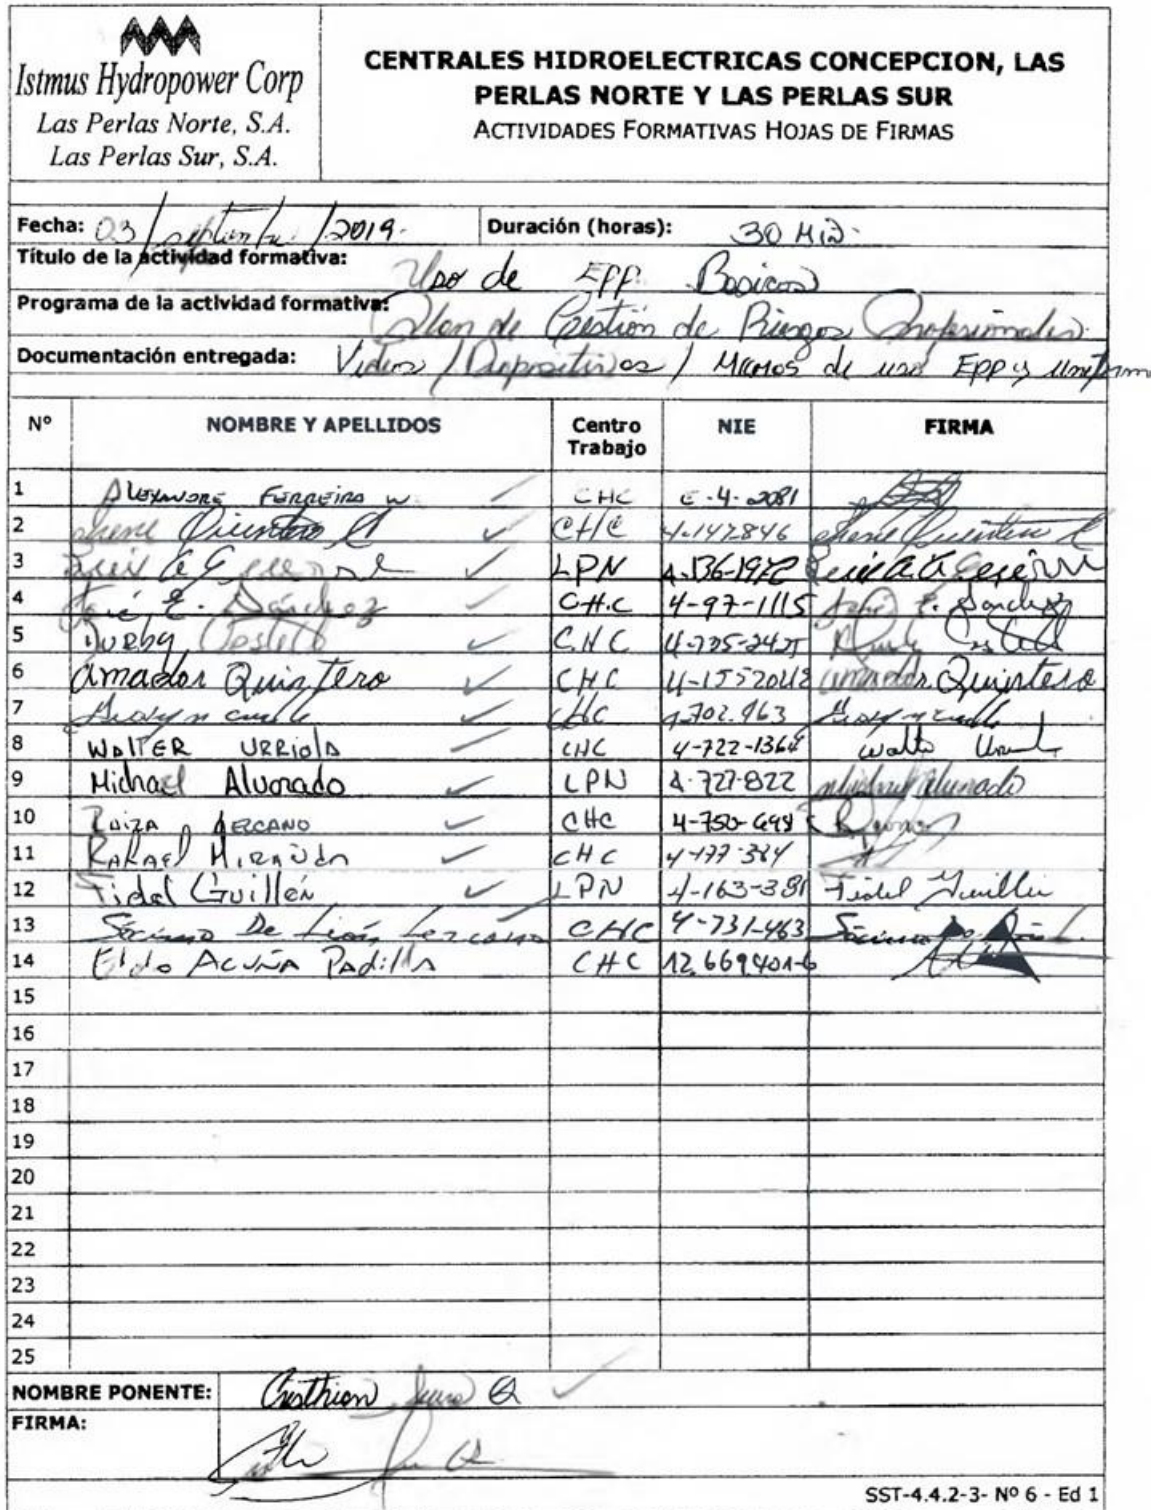 Istmus Hydropower Corp
Las Perlas Norte, S.A.
Las Perlas Sur, S.A.
CENTRALES HIDROELECTRICAS CONCEPCION, LAS
PERLAS NORTE Y LAS PERLAS SUR
ACTIVIDADES FORMATIVAS HOJAS DE FIRMAS
Fecha: 03/septiembre/2019. Duración (horas): 30 Min.
Título de la actividad formativa: Uso de EPP Basicos
Programa de la actividad formativa: Plan de Gestión de Riesgos Profesionales.
Documentación entregada: Videos / Diapositivas / de uso EPP y uniforme
Nº NOMBRE Y APELLIDOS Centro Trabajo NIE FIRMA
1 ALEXANDRE FERREIRA W. CHC E-4-2081
2 Quintero CHC 4-147846 Quintero
3 Luis A G LPN 4-136-1972 Luis A. G.
4 José E. Sánchez CH.C 4-97-1115 José E. Sánchez
5 Durby Castillo C.H.C 4-735-
6 Amador Quintero CHC Amador Quintero
7 CHC 4-702.963
8 WALTER URRIOLA CHC 4-722-1364 Walter
9 Michael Alvarado LPN 4-727-822 Michael Alvarado
10 CHC 4-750-698
11 RAFAEL MIRANDA CHC 4-177-384
12 Fidel Guillén LPN 4-163-381 Fidel Guillén
13 De León Lezcano CHC 4-731-463
14 Eldo ACUÑA Padilla CHC 12.669401-6
15
16
17
18
19
20
21
22
23
24
25
NOMBRE PONENTE: Cristhian Q
FIRMA:
SST-4.4.2-3- Nº 6 - Ed 1